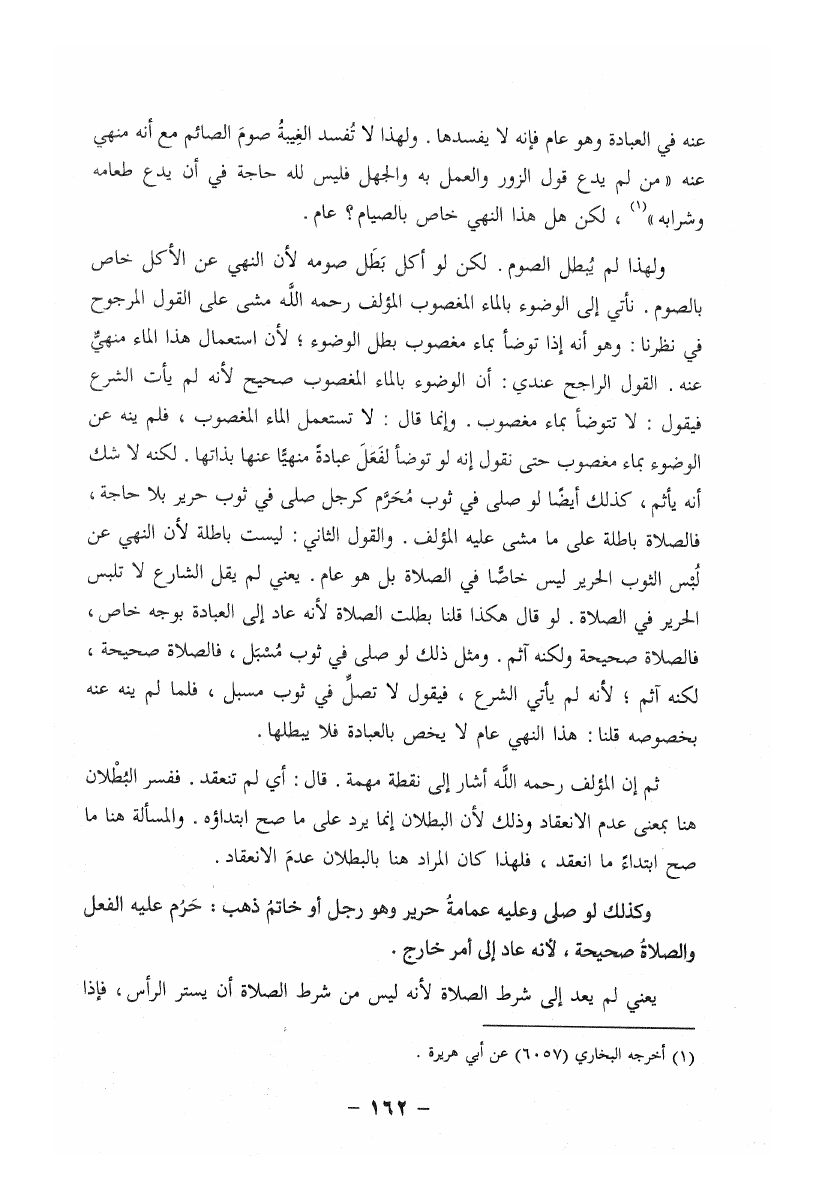 عنه في العبادة وهو عام فإنه لا يفسدها . ولهذا لا تُفسد الغِيبةُ صومَ الصائم مع أنه منهي
عنه « من لم يدع قول الزور والعمل به والجهل فليس لله حاجة في أن يدع طعامه
وشرابه »(١) ، لكن هل هذا النهي خاص بالصيام ؟ عام .
ولهذا لم يُبطل الصوم . لكن لو أكل بَطَل صومه لأن النهي عن الأكل خاص
بالصوم . نأتي إلى الوضوء بالماء المغصوب المؤلف رحمه اللَّه مشى على القول المرجوح
في نظرنا : وهو أنه إذا توضأ بماء مغصوب بطل الوضوء ؛ لأن استعمال هذا الماء منهيٌّ
عنه . القول الراجح عندي : أن الوضوء بالماء المغصوب صحيح لأنه لم يأت الشرع
فيقول : لا تتوضأ بماء مغصوب . وإنما قال : لا تستعمل الماء المغصوب ، فلم ينه عن
الوضوء بماء مغصوب حتى نقول إنه لو توضأ لفَعَلَ عبادةً منهيًّا عنها بذاتها . لكنه لا شك
أنه يأثم ، كذلك أيضًا لو صلى في ثوب مُحَرَّم كرجل صلى في ثوب حرير بلا حاجة ،
فالصلاة باطلة على ما مشى عليه المؤلف . والقول الثاني : ليست باطلة لأن النهي عن
لُبْس الثوب الحرير ليس خاصًّا في الصلاة بل هو عام . يعني لم يقل الشارع لا تلبس
الحرير في الصلاة . لو قال هكذا قلنا بطلت الصلاة لأنه عاد إلى العبادة بوجه خاص ،
فالصلاة صحيحة ولكنه آثم . ومثل ذلك لو صلى في ثوب مُسْبَل ، فالصلاة صحيحة ،
لكنه آثم ؛ لأنه لم يأتي الشرع ، فيقول لا تصلِّ في ثوب مسبل ، فلما لم ينه عنه
بخصوصه قلنا : هذا النهي عام لا يخص بالعبادة فلا يبطلها .
ثم إن المؤلف رحمه اللَّه أشار إلى نقطة مهمة . قال : أي لم تنعقد . ففسر البُطْلان
هنا بمعنى عدم الانعقاد وذلك لأن البطلان إنما يرد على ما صح ابتداؤه . والمسألة هنا ما
صح ابتداءً ما انعقد ، فلهذا كان المراد هنا بالبطلان عدمَ الانعقاد .
وكذلك لو صلى وعليه عمامةُ حرير وهو رجل أو خاتمُ ذهب : حَرُم عليه الفعل
والصلاةُ صحيحة ، لأنه عاد إلى أمر خارج .
يعني لم يعد إلى شرط الصلاة لأنه ليس من شرط الصلاة أن يستر الرأس ، فإذا
(١) أخرجه البخاري (٦٠٥٧) عن أبي هريرة .
– ١٦٢ –